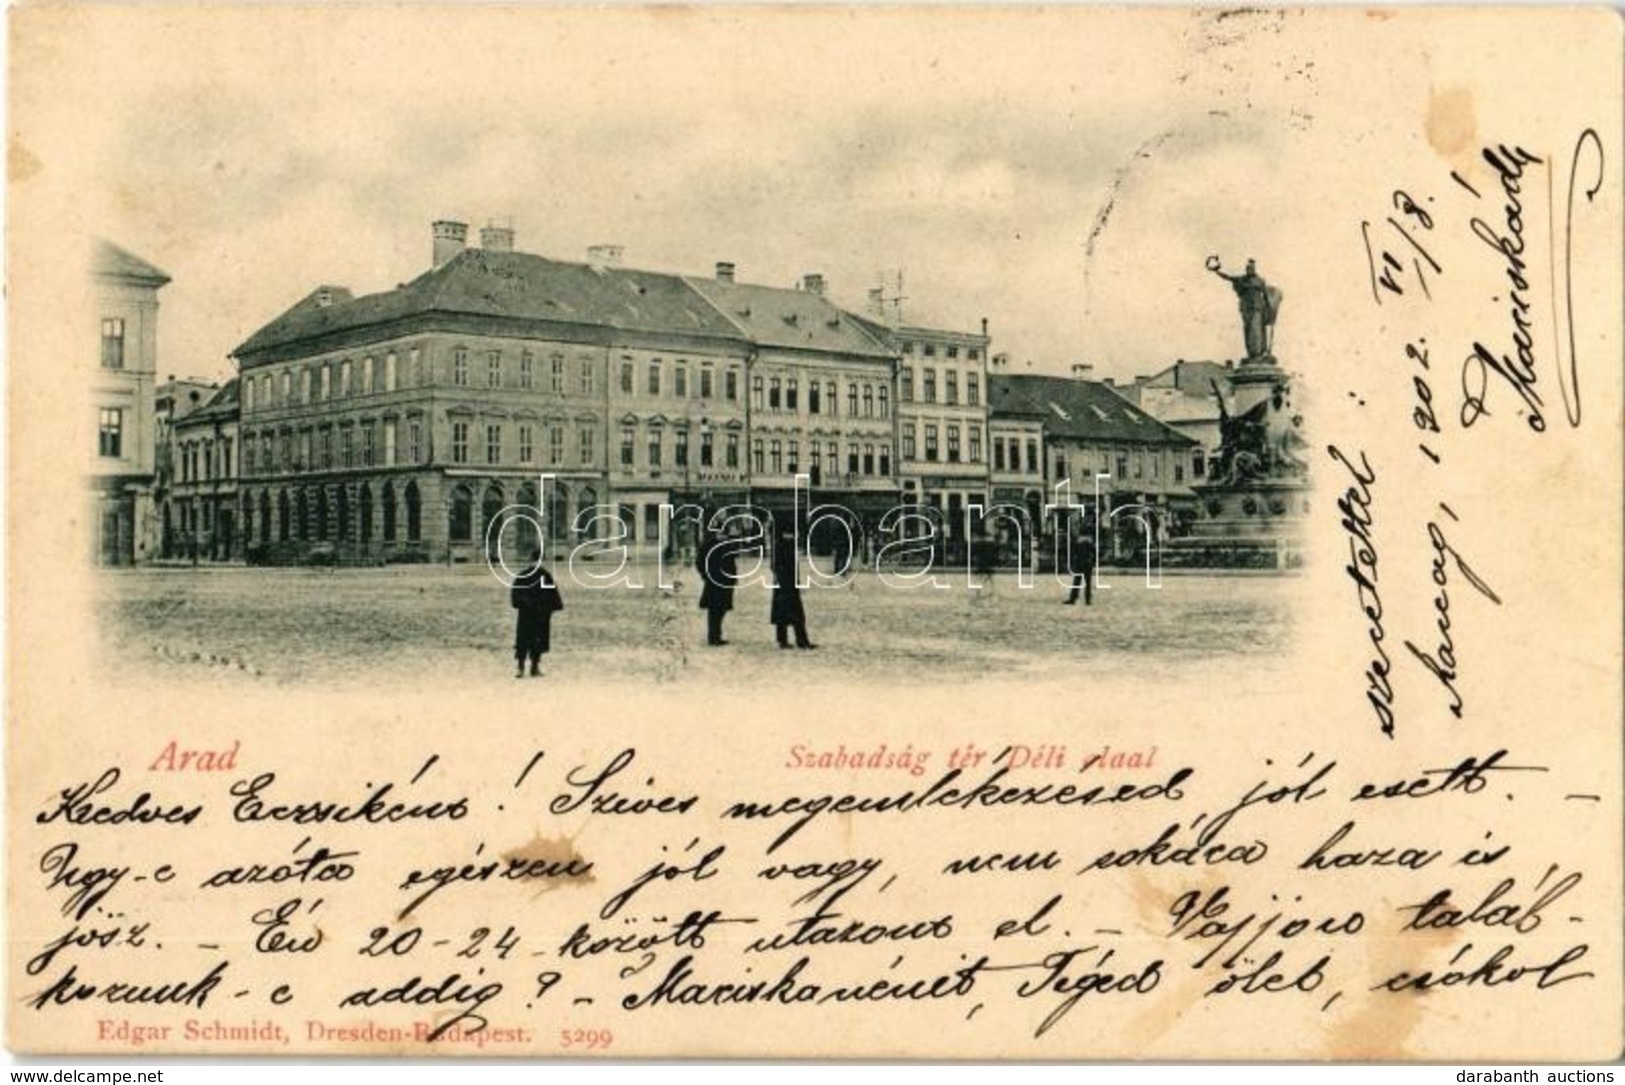 Arad
Szabadság tér Déli olaal
Kedves Erzsikém! Szíves megemlékezésed jól esett. –
Ugy-e azóta egészen jól vagy, nem sokára haza is
jösz. – Én 20-24 között utazom el. – Vajjon talál-
kozunk-e addig? – Mariskanénit, Téged ölel, csókol
szeretettel:
1902. VI/8.
Mariskád
Edgar Schmidt, Dresden-Budapest. 5299
darabanth
www.delcampe.net
darabanth auctions